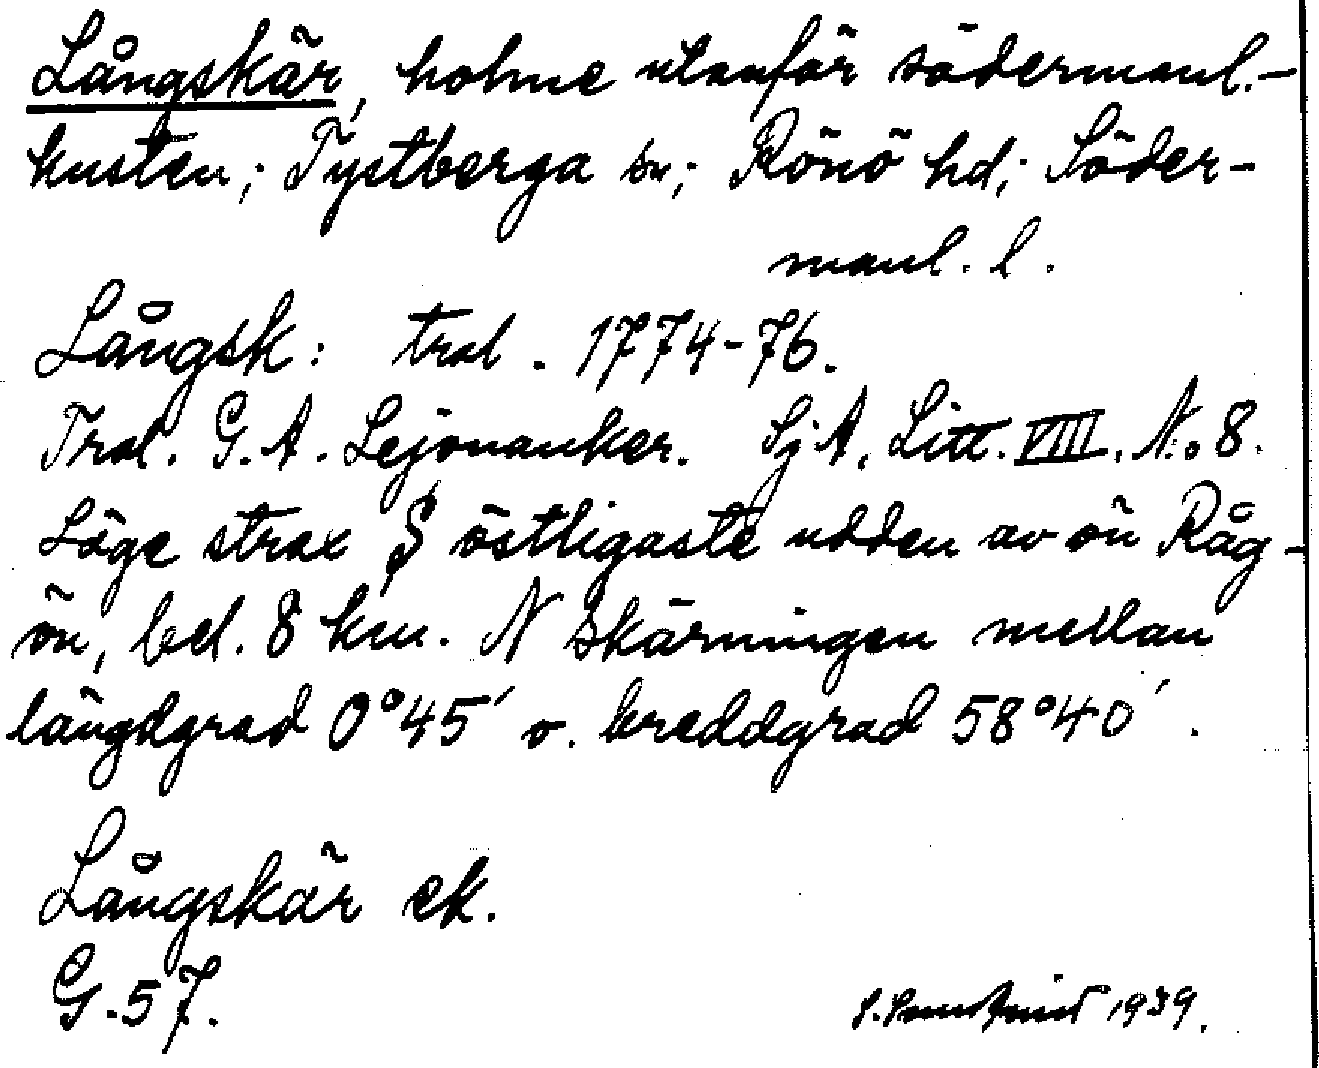 Långskär, holme utanför södermanl.-
kusten; Tystberga sn; Rönö hd; Söder-
manl. l.
Långsk: trol. 1774-76.
Trol. G. A. Lejonanker. SjA. Litt. VIII. No 8.
Läge strax S östligaste udden av ön Råg-
ön, bel. 8 km. N skärningen mellan
längdgrad 0°45′ o. breddgrad 58°40′.
Långskär ek.
G. 57.
1939.